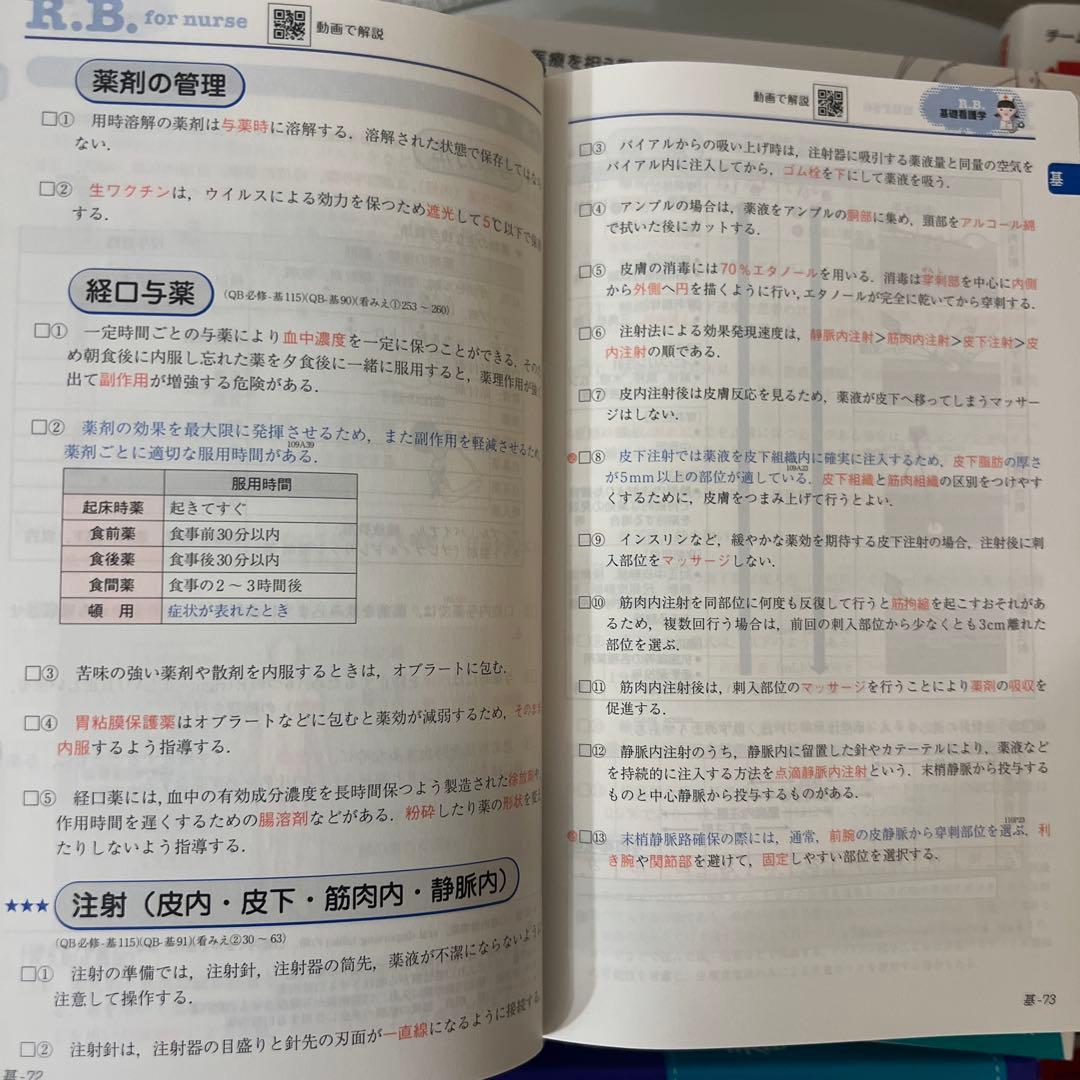 R.B. for nurse 動画で解説
薬剤の管理
□① 用時溶解の薬剤は与薬時に溶解する．溶解された状態で保存してはなら
ない．
□② 生ワクチンは，ウイルスによる効力を保つため遮光して5℃以下で
する．
経口与薬 (QB必修-基115)(QB-基90)(看みえ①253～260)
□① 一定時間ごとの与薬により血中濃度を一定に保つことができる．そのた
め朝食後に内服し忘れた薬を夕食後に一緒に服用すると，薬理作用が強く
出て副作用が増強する危険がある．
□② 薬剤の効果を最大限に発揮させるため，また副作用を軽減させるため，
薬剤ごとに適切な服用時間がある．109A39
服用時間
起床時薬 起きてすぐ
食前薬 食事前30分以内
食後薬 食事後30分以内
食間薬 食事の2～3時間後
頓用 症状が表れたとき
□③ 苦味の強い薬剤や散剤を内服するときは，オブラートに包む．
□④ 胃粘膜保護薬はオブラートなどに包むと薬効が減弱するため，そのまま
内服するよう指導する．
□⑤ 経口薬には，血中の有効成分濃度を長時間保つよう製造された徐放剤や，
作用時間を遅くするための腸溶剤などがある．粉砕したり薬の形状を変え
たりしないよう指導する．
★★★ 注射（皮内・皮下・筋肉内・静脈内）
(QB必修-基115)(QB-基91)(看みえ②30～63)
□① 注射の準備では，注射針，注射器の筒先，薬液が不潔にならないように
注意して操作する．
□② 注射針は，注射器の目盛りと針先の刃面が一直線になるように接続する．
基-72
医療を担う
チーム
動画で解説 R.B. 基礎看護学
基
□③ バイアルからの吸い上げ時は，注射器に吸引する薬液量と同量の空気を
バイアル内に注入してから，ゴム栓を下にして薬液を吸う．
□④ アンプルの場合は，薬液をアンプルの胴部に集め，頸部をアルコール綿
で拭いた後にカットする．
□⑤ 皮膚の消毒には70％エタノールを用いる．消毒は穿刺部を中心に内側
から外側へ円を描くように行い，エタノールが完全に乾いてから穿刺する．
□⑥ 注射法による効果発現速度は，静脈内注射>筋肉内注射>皮下注射>皮
内注射の順である．
□⑦ 皮内注射後は皮膚反応を見るため，薬液が皮下へ移ってしまうマッサー
ジはしない．
□⑧ 皮下注射では薬液を皮下組織内に確実に注入するため，皮下脂肪の厚さ
が5mm以上の部位が適している．109A23 皮下組織と筋肉組織の区別をつけやす
くするために，皮膚をつまみ上げて行うとよい．
□⑨ インスリンなど，緩やかな薬効を期待する皮下注射の場合，注射後に刺
入部位をマッサージしない．
□⑩ 筋肉内注射を同部位に何度も反復して行うと筋拘縮を起こすおそれがあ
るため，複数回行う場合は，前回の刺入部位から少なくとも3cm離れた
部位を選ぶ．
□⑪ 筋肉内注射後は，刺入部位のマッサージを行うことにより薬剤の吸収を
促進する．
□⑫ 静脈内注射のうち，静脈内に留置した針やカテーテルにより，薬液など
を持続的に注入する方法を点滴静脈内注射という．末梢静脈から投与する
ものと中心静脈から投与するものがある．
□⑬ 末梢静脈路確保の際には，通常，前腕の皮静脈から穿刺部位を選ぶ．110P23 利
き腕や関節部を避けて，固定しやすい部位を選択する．
基-73